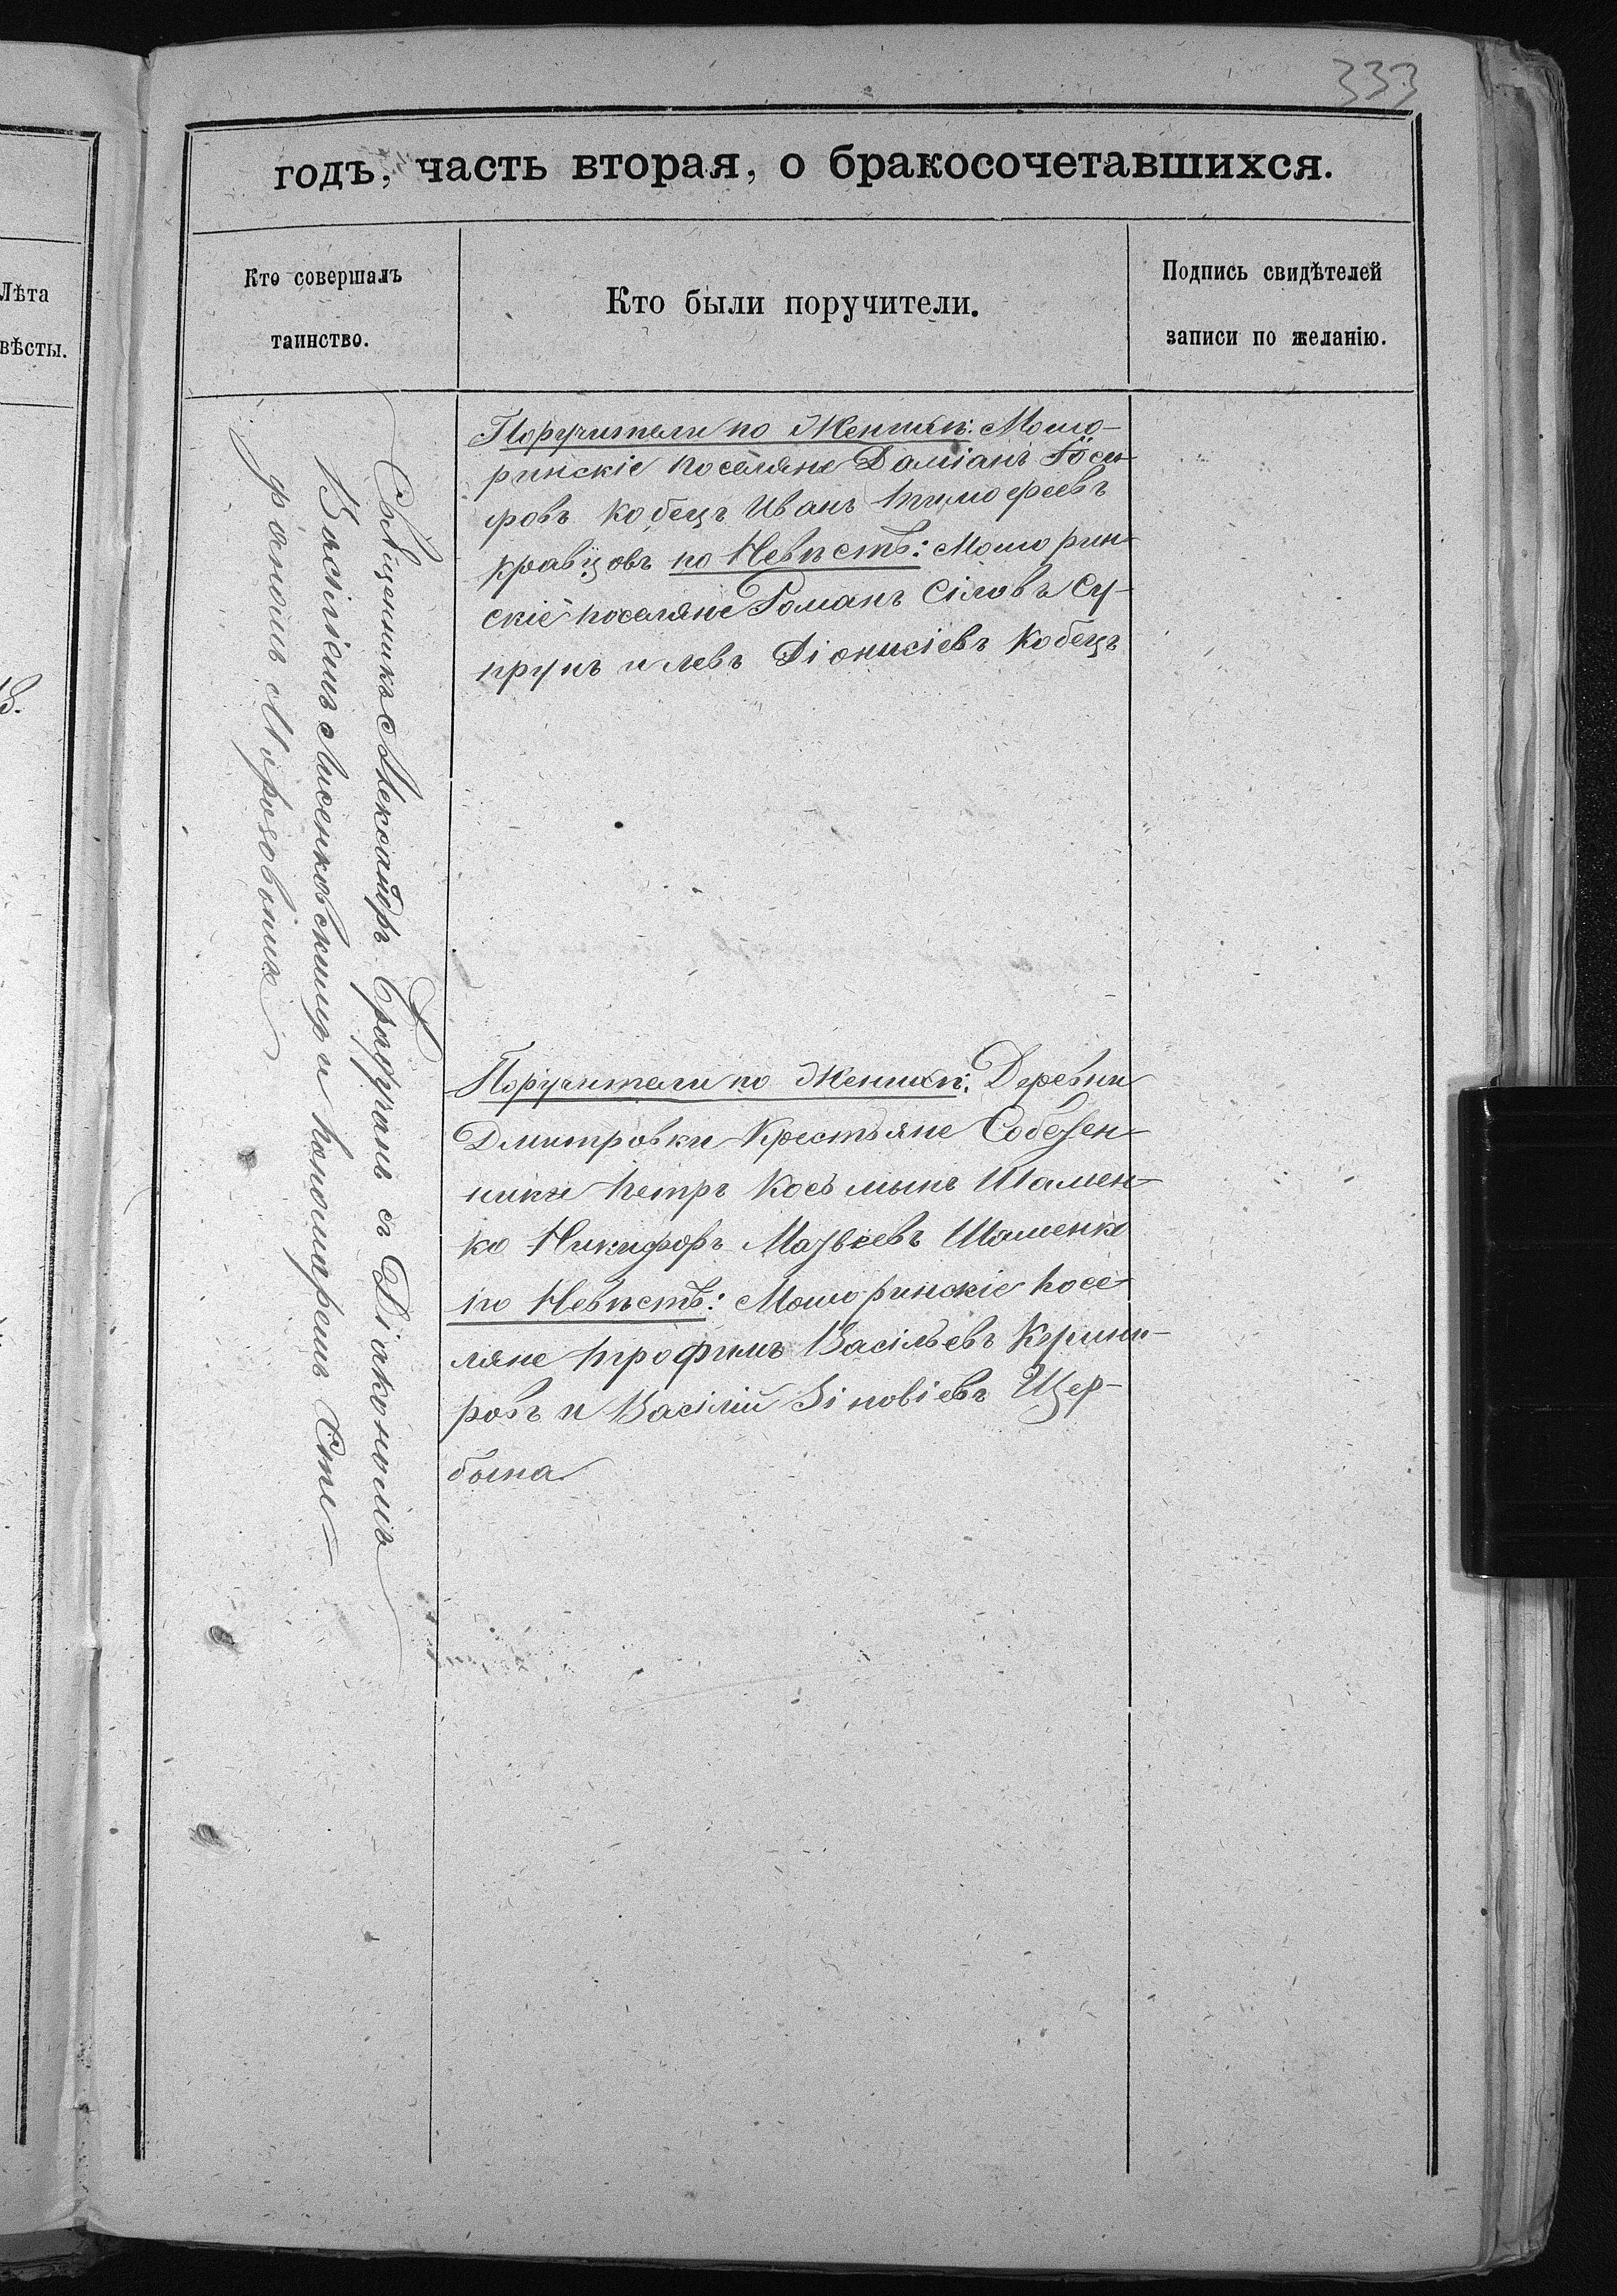 333
годъ, часть вторая, о бракосочетавшихся.
Лѣта
вѣсты.
18.
Кто совершалъ
таинство.
Кто были поручители.
Подпись свидѣтелей
записи по желанію.
Священникъ Александръ с Діакономъ
Василіемъ Лисенковскимъ и пономаремъ Сте-
фаномъ
Поручители по Женихѣ: Мошо-
ринскіе поселяне Даміанъ Іоси-
фовъ Кобецъ Иванъ Тимофеевъ
Кравцовъ по Невѣстѣ: Мошорин-
скіе поселяне Романъ Сіловъ Су-
прунъ и Левъ Діонисіевъ Кобецъ
Поручители по Женихѣ: Деревни
Дмитровки Крестьяне Собствен-
ники Петръ Косьминъ Шамен-
ко Никифоръ Матвѣевъ Шаменко
по Невѣстѣ: Мошоринскіе посе-
ляне Трофимъ Васільевъ
ровъ и Васілій Зіновіевъ Щер-
бына